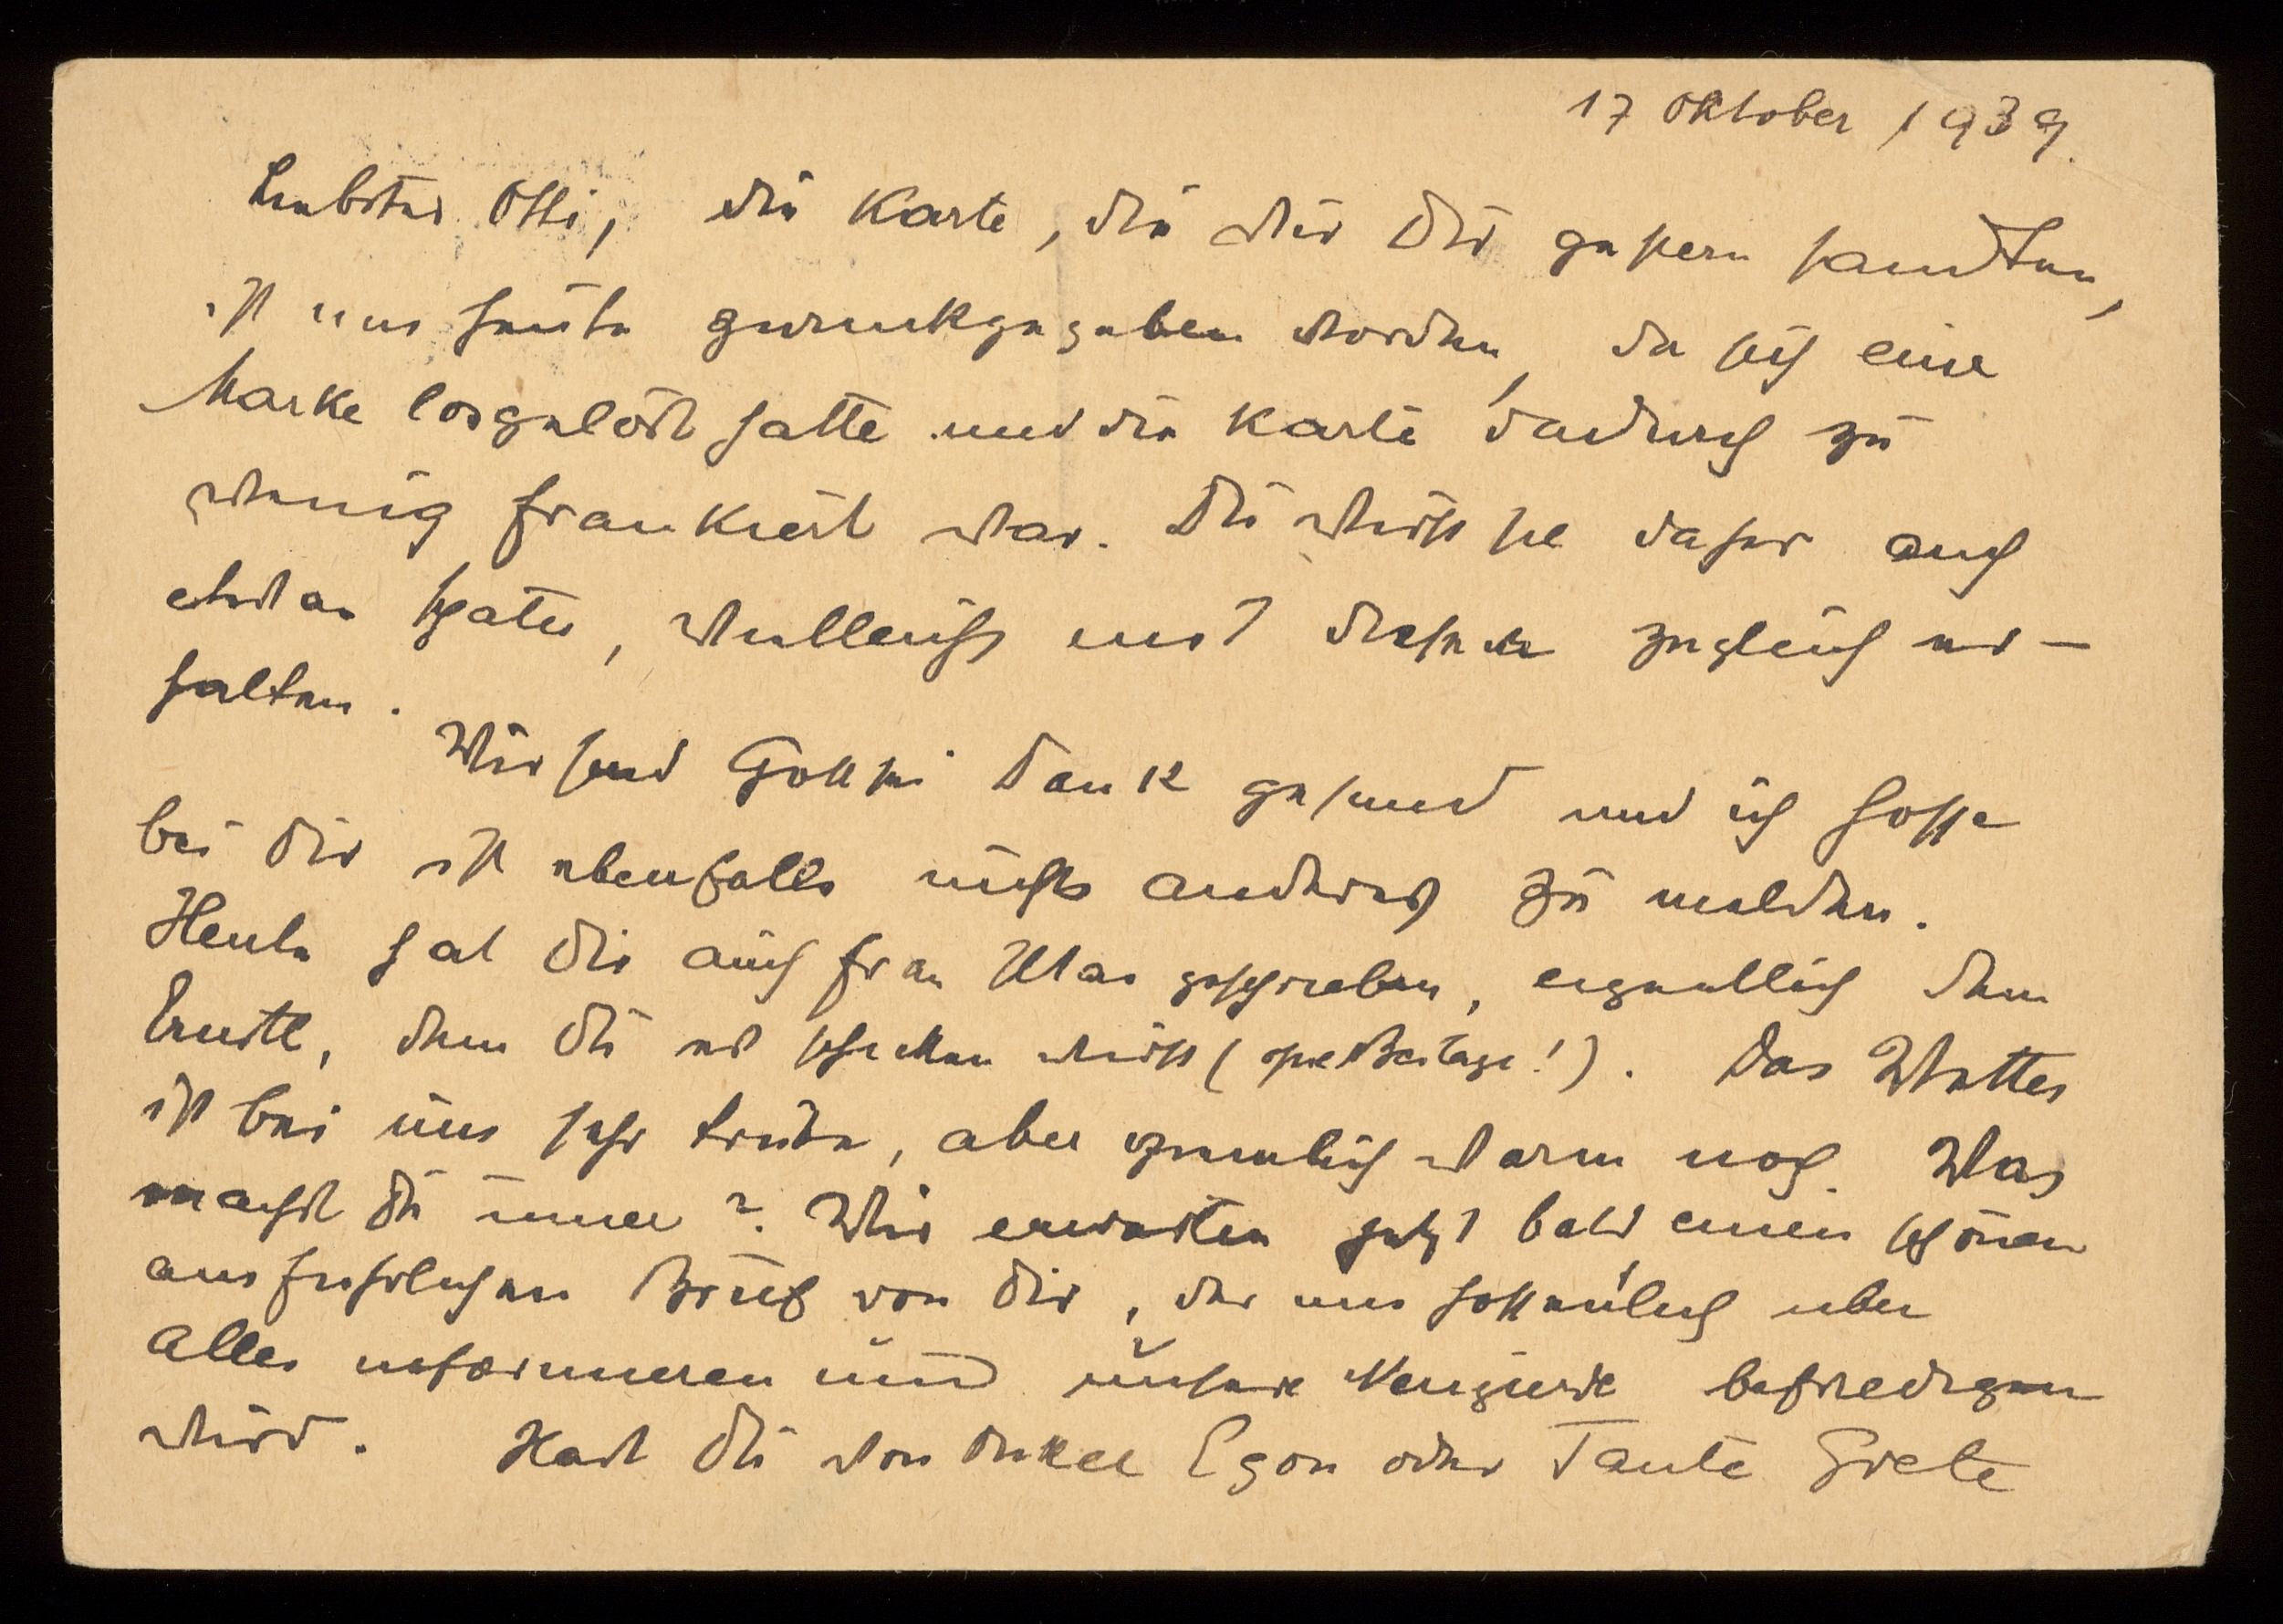 17 Oktober 1939.
Liebster Otti, die Karte, die wir Dir gestern sandten,
ist uns heute zurückgegeben worden, da sich eine
Marke losgelöst hatte und die Karte dadurch zu
wenig frankiert war. Du wirst sie daher auch
etwas später, vielleicht mit dieser zugleich er-
halten.
Wir sind Gott sei Dank gesund und ich hoffe
bei Dir ist ebenfalls nichts anderes zu melden.
Heute hat Dir auch Frau geschrieben, eigentlich dem
Ernstl, dem Du es schicken wirst (ohne Beilage!). Das Wetter
ist bei uns sehr trübe, aber ziemlich warm noch. Was
machst Du immer? Wir erwarten jetzt bald einen schönen
ausführlichen Brief von Dir, der uns hoffentlich über
alles informieren und unsere Neugierde befriedigen
wird. Hast Du von Onkel Egon oder Tante Grete